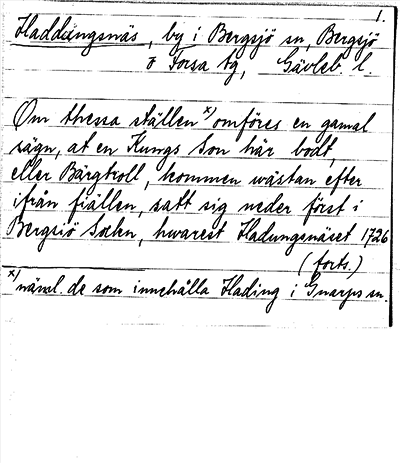 1.
Haddängsnäs, by i Bergsjö sn, Bergsjö
o Forsa tg, Gävleb. l.
Om thessa ställen x) omföres en gamal
sägn, at en Kungs Son här bodt,
eller Bärgtroll, kommen wästan efter
ifrån fiällen, satt sig neder först i
Bergsiö Sochn, hwarest Hadungsnäset 1726
(forts.)
x) näml. de som innehålla Hading i Gnarps sn.